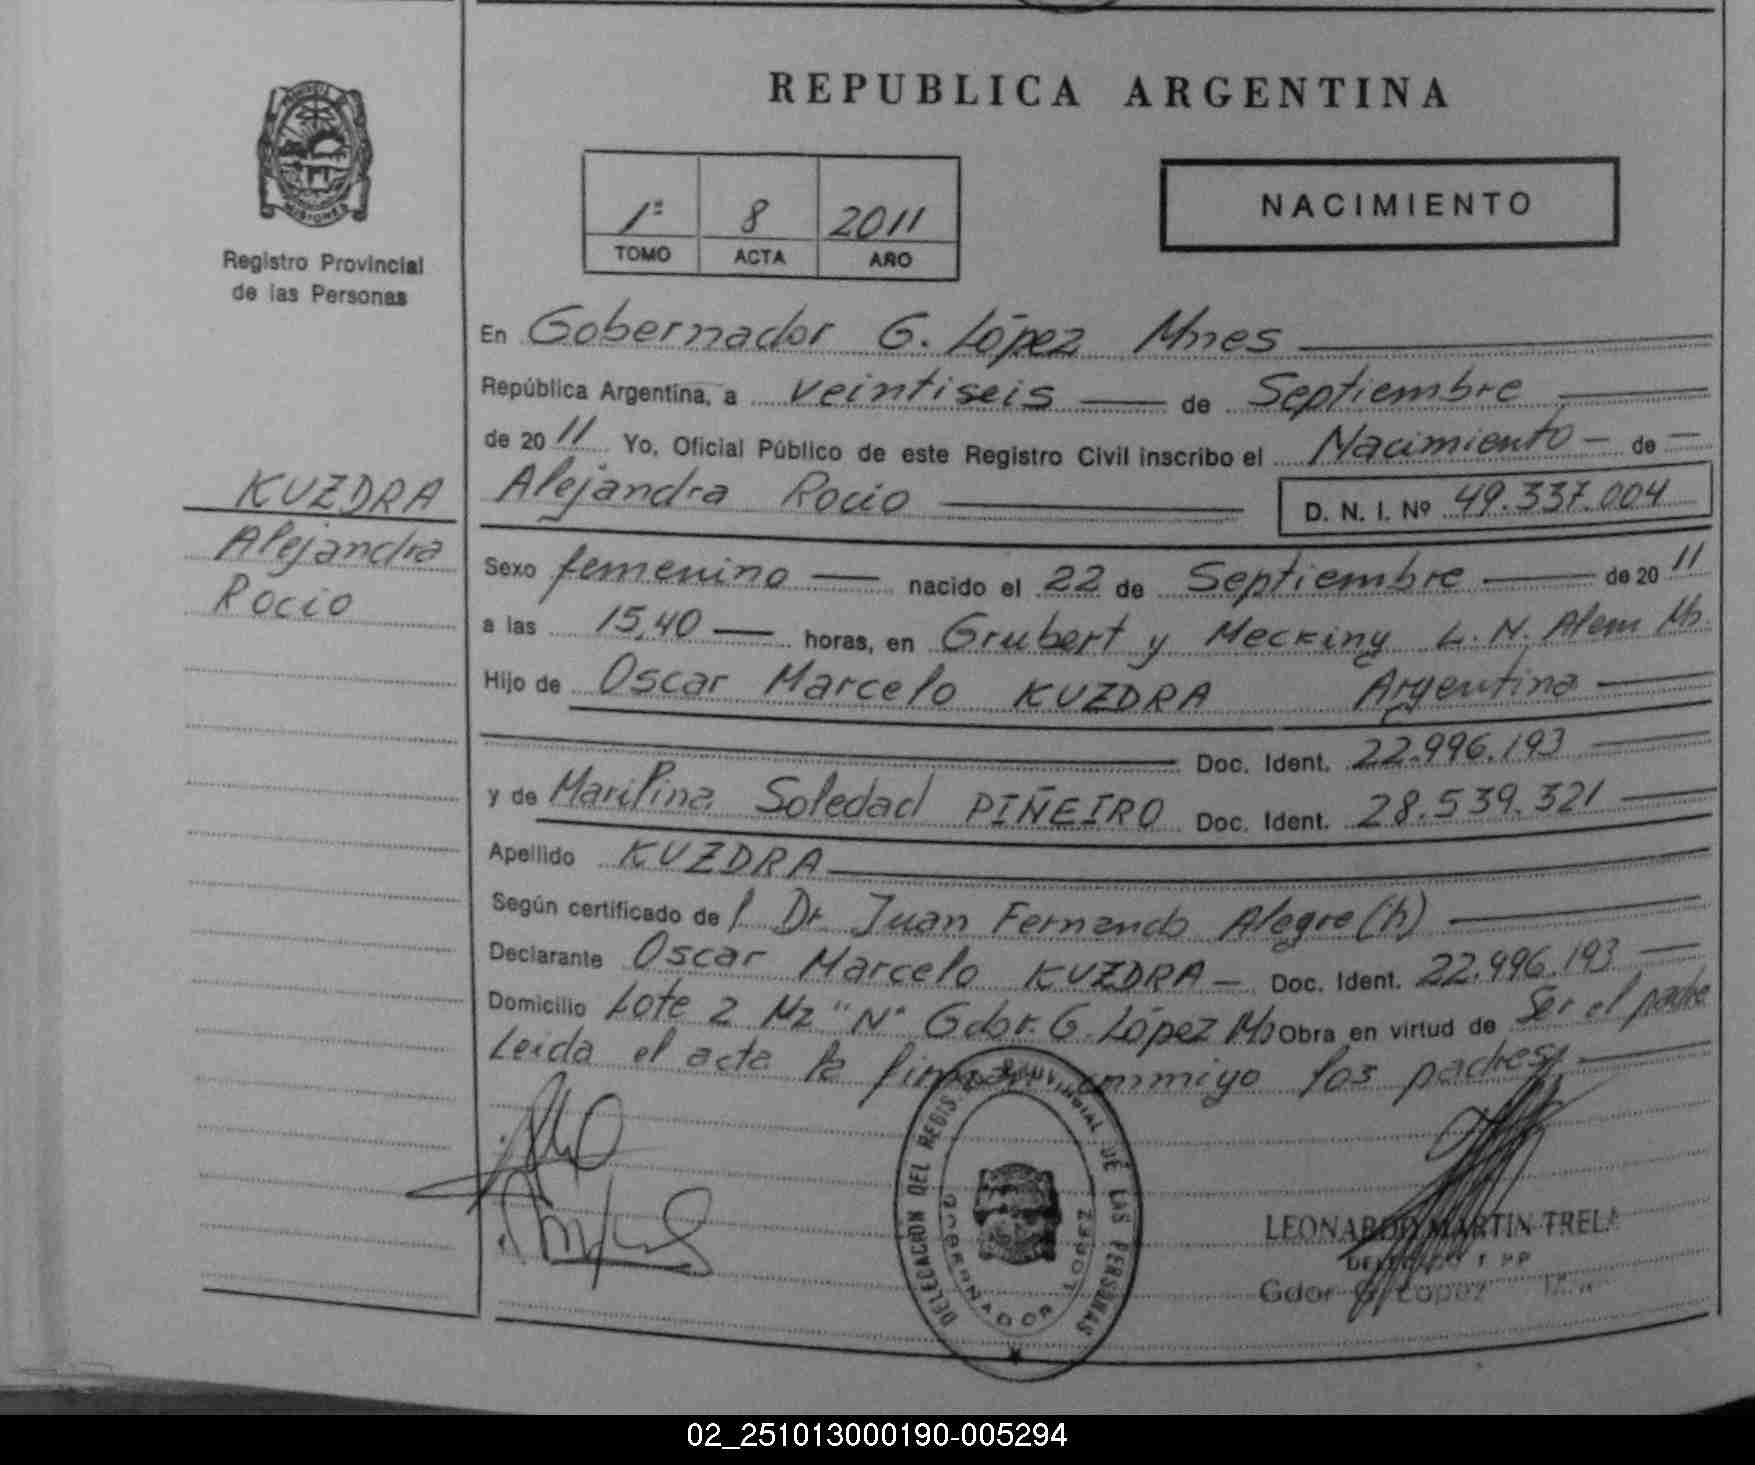 REPUBLICA ARGENTINA
MISIONES
Registro Provincial
de las Personas
1ª 8 2011
TOMO ACTA AÑO
NACIMIENTO
En Gobernador G. López Mnes
República Argentina, a veintiseis de Septiembre
de 2011 Yo, Oficial Público de este Registro Civil inscribo el Nacimiento de
Alejandra Rocio D. N. I. Nº 49.337.004
KUZDRA
Alejandra
Rocio
Sexo femenino nacido el 22 de Septiembre de 2011
a las 15,40 horas, en Grubert y Mecking L. N. Alem Ms.
Hijo de Oscar Marcelo KUZDRA Argentina
Doc. Ident. 22.996.193
y de Marilina Soledad PIÑEIRO Doc. Ident. 28.539.321
Apellido KUZDRA
Según certificado de l Dr. Juan Fernando Alegre (h)
Declarante Oscar Marcelo KUZDRA Doc. Ident. 22.996.193
Domicilio Lote 2 Mz "N" Gdor. G. López Ms Obra en virtud de Ser el padre
Leida el acta la firman conmigo los padres
DELEGACION DEL REGIS. PROVINCIAL DE LAS PERSONAS
GOBERNADOR LOPEZ
LEONARDO MARTIN TRELA
Gdor G. Lopez
02_251013000190-005294